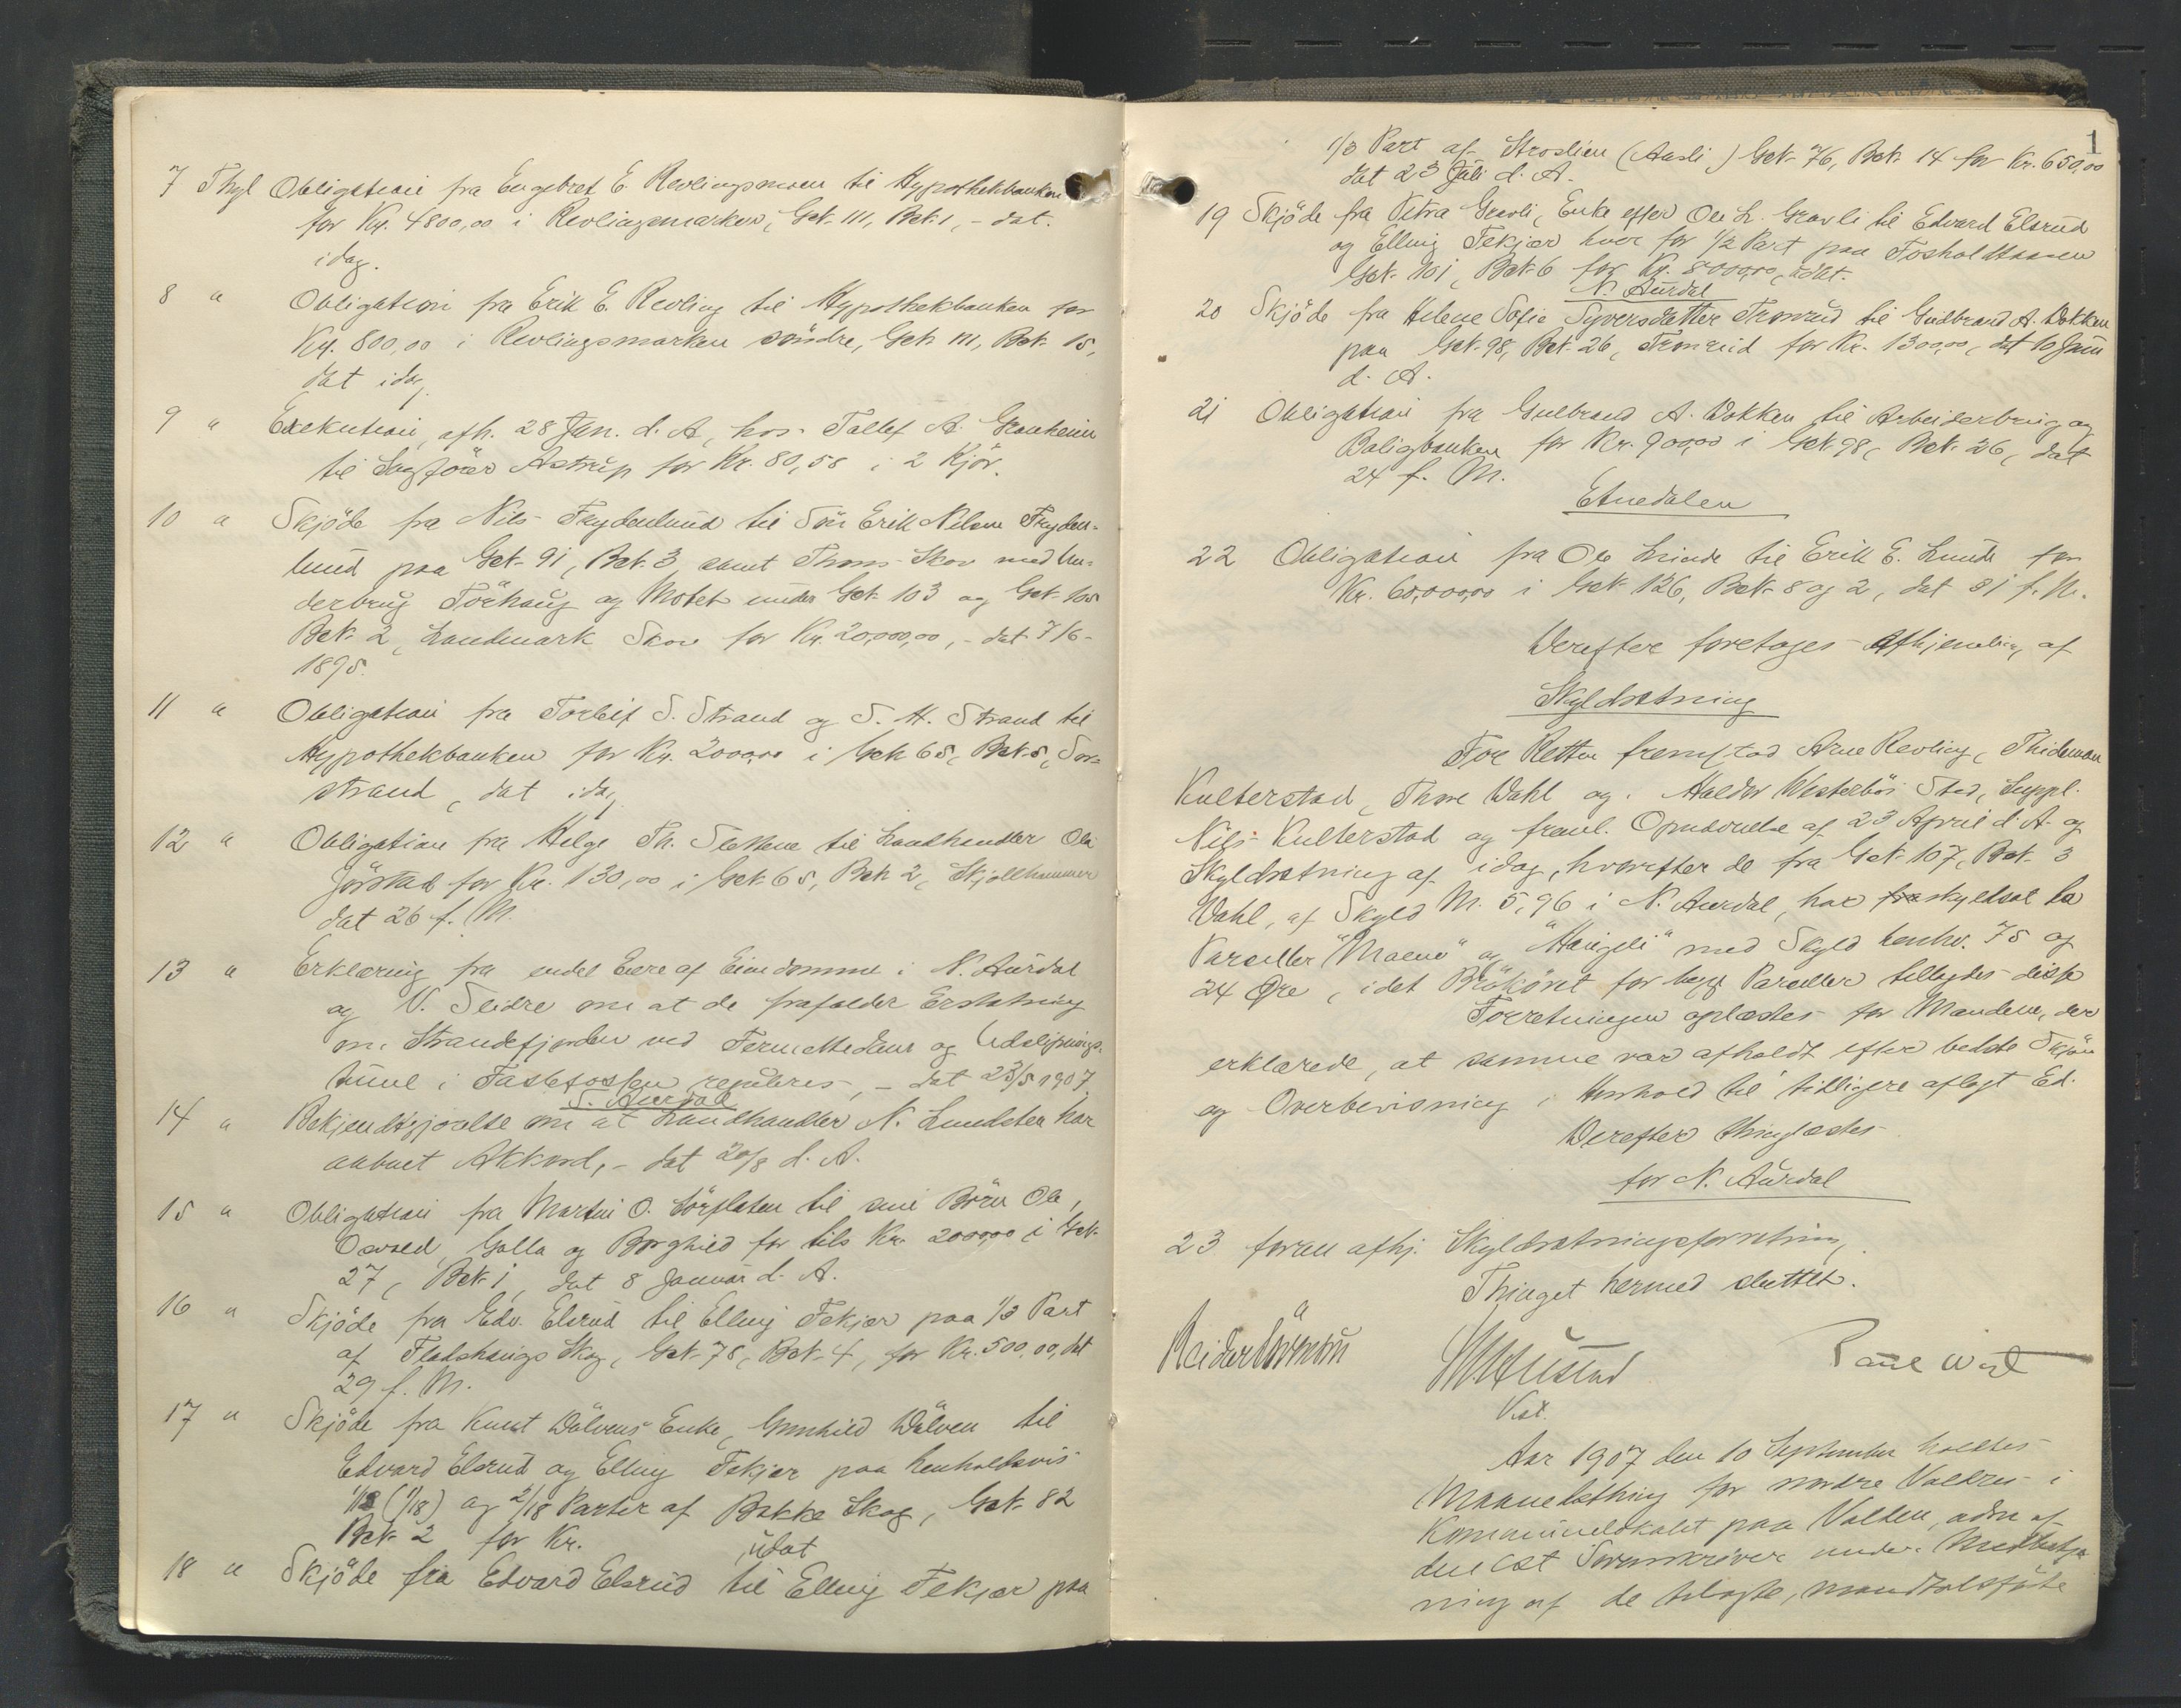 7 Thgl Obligation fra Engebret E. Revlingsmoen til Hypothekbanken
for Kr. 4800,00 i Revlingsmarken, Gt. 111, Bt. 1, - dat.
idag.
8 " Obligation fra Erik E. Revling til Hypothekbanken for
Kr. 800,00 i Revlingsmarken søndre, Gt. 111, Bt. 15,
dat idag,
9 " Exekution, afh. 28 Jan. d. A, hos Tollef A. Granheim
til Sagfører Astrup for Kr. 80,58 i 2 Kjør.
10 " Skjøde fra Nils Frydenlund til Søn Erik Nilsen Fryden-
lund paa Gt. 91, Bt. 3, samt Thons Skov med Un-
derbrug Törhaug og Motet under Gt. 103 og Gt. 105
Bt. 2, Landmark Skov for Kr. 20,000,00, - dat 7/6-
1895.
11 " Obligation fra Torleif S. Strand og S. H. Strand til
Hypothekbanken for Kr. 2000,00 i Gt. 65, Bt. 5, Sør-
strand, dat idag
12 " Obligation fra Helge Th. Slettene til Landhandler Ola
Jørstad for Kr. 130,00 i Gt. 65, Bt. 2, Skjollhammer
dat 26 f. M.
13 " Erklæring fra endel Eiere af Eiendomme i N. Aurdal
og V. Slidre om at de frafalder Erstatning
om Strandefjorden ved og
i Faslefossen reguleres, - dat 23/5 1907
S. Aurdal
14 " Bekjendtgjørelse om at Landhandler N. Lundsten har
aabnet Akkord, - dat 20/8 d. A.
15 " Obligation fra Martin O. til sine Børn Ole,
Galla og Borghild for tils Kr. 2000,00 i Gt.
27, Bt. 1, dat 8 Januar d. A.
16 " Skjøde fra Edv. Elsrud til Elling Fekjær paa 1/3 Part
af Fladshaugs Skog, Gt. 78, Bt. 4, for Kr. 500,00, dat
29 f. M.
17 " Skjøde fra Knut Dølvens Enke, Gunhild Dølven til
Edvard Elsrud og Elling Fekjær paa henholdsvis
(1/18) og 2/18 Parter af Bakke Skog, Gt. 82
Bt. 2 for Kr. , udat
18 " Skjøde fra Edvard Elsrud til Elling Fekjær paa
1
1/3 Part af Stroslien (Aasli) Gt. 76, Bt. 14 for Kr. 650,00
dat 23 Juli d. A.
19 Skjøde fra Petra Gravli, Enke efter Ole L. Gravli til Edvard Elsrud
og Elling Fekjær hver for 1/2 Part paa Fosholtaasen
Gt. 101, Bt. 6 for Kr. 8000,00, udat.
N. Aurdal
20 Skjøde fra Helene Sofie Syversdatter Tronrud til Gudbrand A. Dokken
paa Gt. 98, Bt. 26, Tronrud for Kr. 1300,00, dat 10 Juni
d. A.
21 Obligation fra Gulbrand A. Dokken til Arbeiderbrug og
Boligbanken for Kr. 900,00 i Gt. 98, Bt. 26, dat
24 f. M.
Etnedalen
22 Obligation fra Ole Lunde til Erik E. Lunde for
Kr. 60,000,00 i Gt. 126, Bt. 8 og 2, dat 31 f. M.
Derefter foretages Afhjemling af
Skyldsætning
For Retten fremstod Arne Revling, Thideman
Kulterstad, Thore Dahl og Haldor Westerbøs Sted, Suppl.
Nils Kulterstad og freml. Opnævnelse af 23 April d. A. og
Skyldsætning af idag, hvorefter de fra Gt. 107, Bt. 3
Dahl, af Skyld M. 5,96 i N. Aurdal, har fra skyldsat to
Parceller "Moene" og "Haugli" med Skyld henhv. 75 og
24 Øre, idet for begge Parceller tillagdes disse
Forretningen oplæstes for Mændene, der
erklærede, at samme var afholdt efter bedste Skjøn
og Overbevisning i Henhold til tidligere aflagt Ed.
Derefter thinglæstes
for N. Aurdal
23 foran afhj. Skyldsætningsforretning,
Thinget hermed sluttet.
Vst.
Aar 1907 den 10 September holdtes
Maanedsthing for nordre Valdres i
Kommunelokalet paa Volden, adm af
den cst Sorenskriver under Medbetje-
ning af de tilagte, mandtalsførte